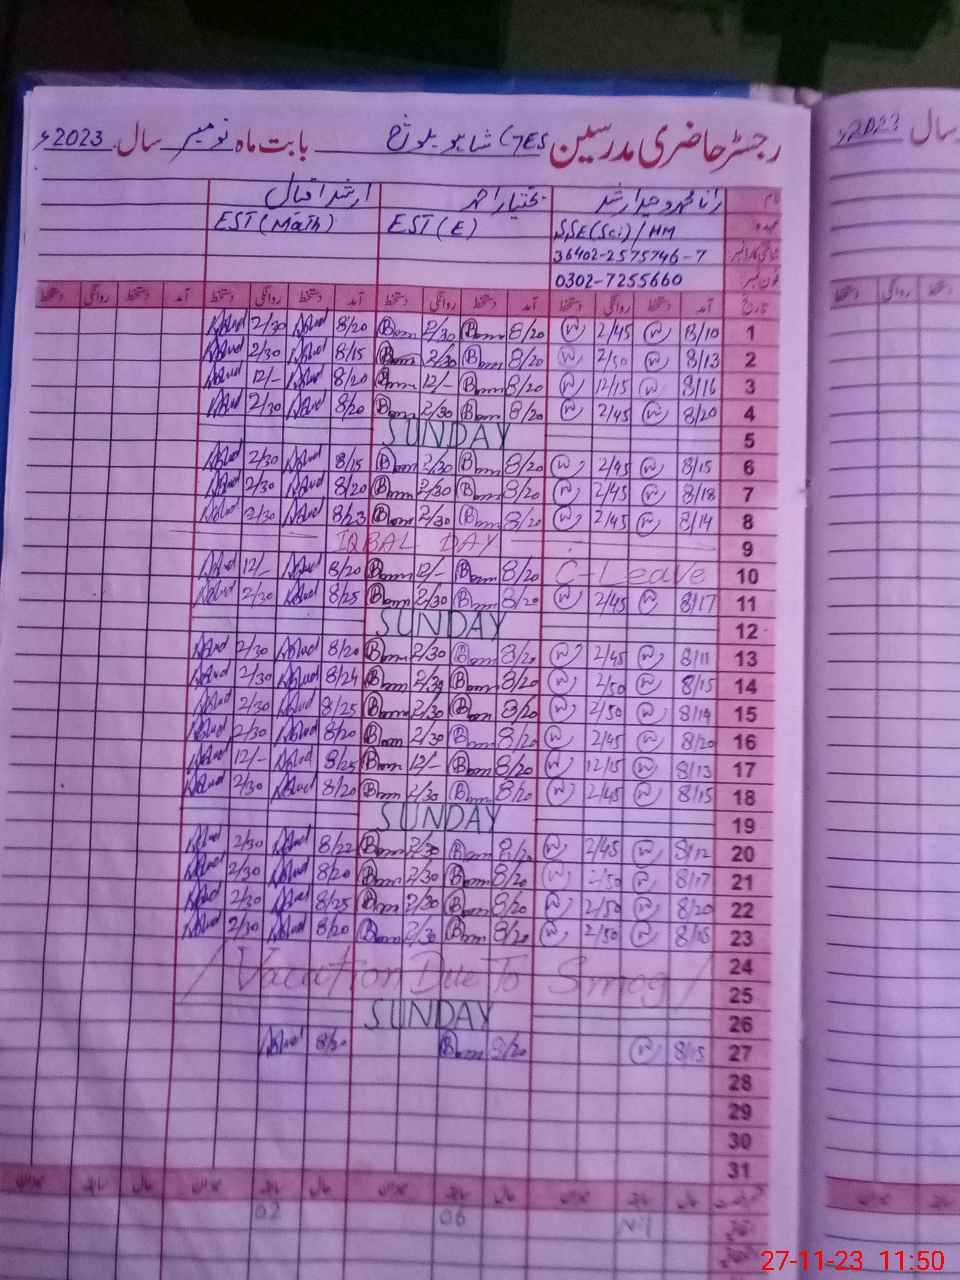 رجسٹر حاضری مدرسین GES شاہو بلوچ بابت ماہ نومبر سال 2023ء
نام رانا محمد وحید ارشد بختیار احمد ارشد اقبال
عہدہ SSE(Sci)/HM EST(E) EST(Math)
شناختی کارڈ نمبر 36402-2575746-7
فون نمبر 0302-7255660
تاریخ آمد دستخط روانگی دستخط آمد دستخط روانگی دستخط آمد دستخط روانگی دستخط آمد دستخط روانگی دستخط
1 8/10 2/45 8/20 2/30 8/20 2/30
2 8/13 2/50 8/20 2/30 8/15 2/30
3 8/16 12/15 8/20 12/- 8/20 12/-
4 8/20 2/45 8/20 2/30 8/20 2/30
5 SUNDAY
6 8/15 2/45 8/20 2/30 8/15 2/30
7 8/18 2/45 8/20 2/30 8/20 2/30
8 8/14 2/45 8/20 2/30 8/23 2/30
9 IQBAL DAY
10 C-Leave 8/20 12/- 8/20 12/-
11 8/17 2/45 8/20 2/30 8/25 2/30
12 SUNDAY
13 8/11 2/45 8/20 2/30 8/20 2/30
14 8/15 2/50 8/20 2/30 8/24 2/30
15 8/14 2/50 8/20 2/30 8/25 2/30
16 8/20 2/45 8/20 2/30 8/20 2/30
17 8/13 12/15 8/20 12/- 8/25 12/-
18 8/15 2/45 8/20 2/30 8/20 2/30
19 SUNDAY
20 8/12 2/45 8/20 2/30 8/22 2/30
21 8/17 2/50 8/20 2/30 8/20 2/30
22 8/20 2/50 8/20 2/30 8/25 2/30
23 2/50 8/20 2/30 8/20 2/30
24 Vacation Due To Smog
25
26 SUNDAY
27 8/15 8/20 8/20
28
29
30
31
حال سابقہ میزان حال سابقہ میزان حال سابقہ میزان
Nil 06 02
سال 2023ء
27-11-23 11:50